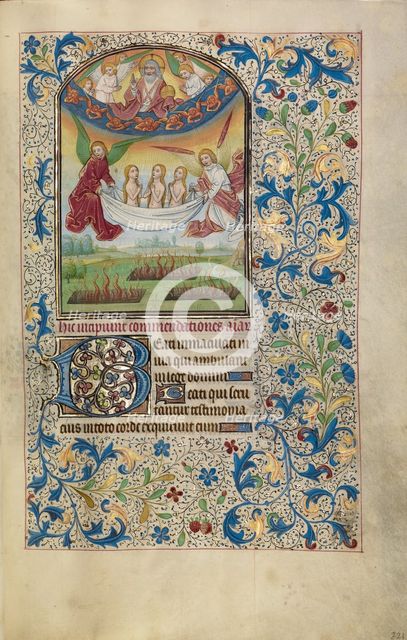 Hic incipiunt commendationes aiar
Beati immaculati in
via qui ambulant
in lege domini
Beati qui scru
tantur testimonia
eius in toto corde exquirunt eum
Heritage
Heritage
Heritage
Heritage
Heritage